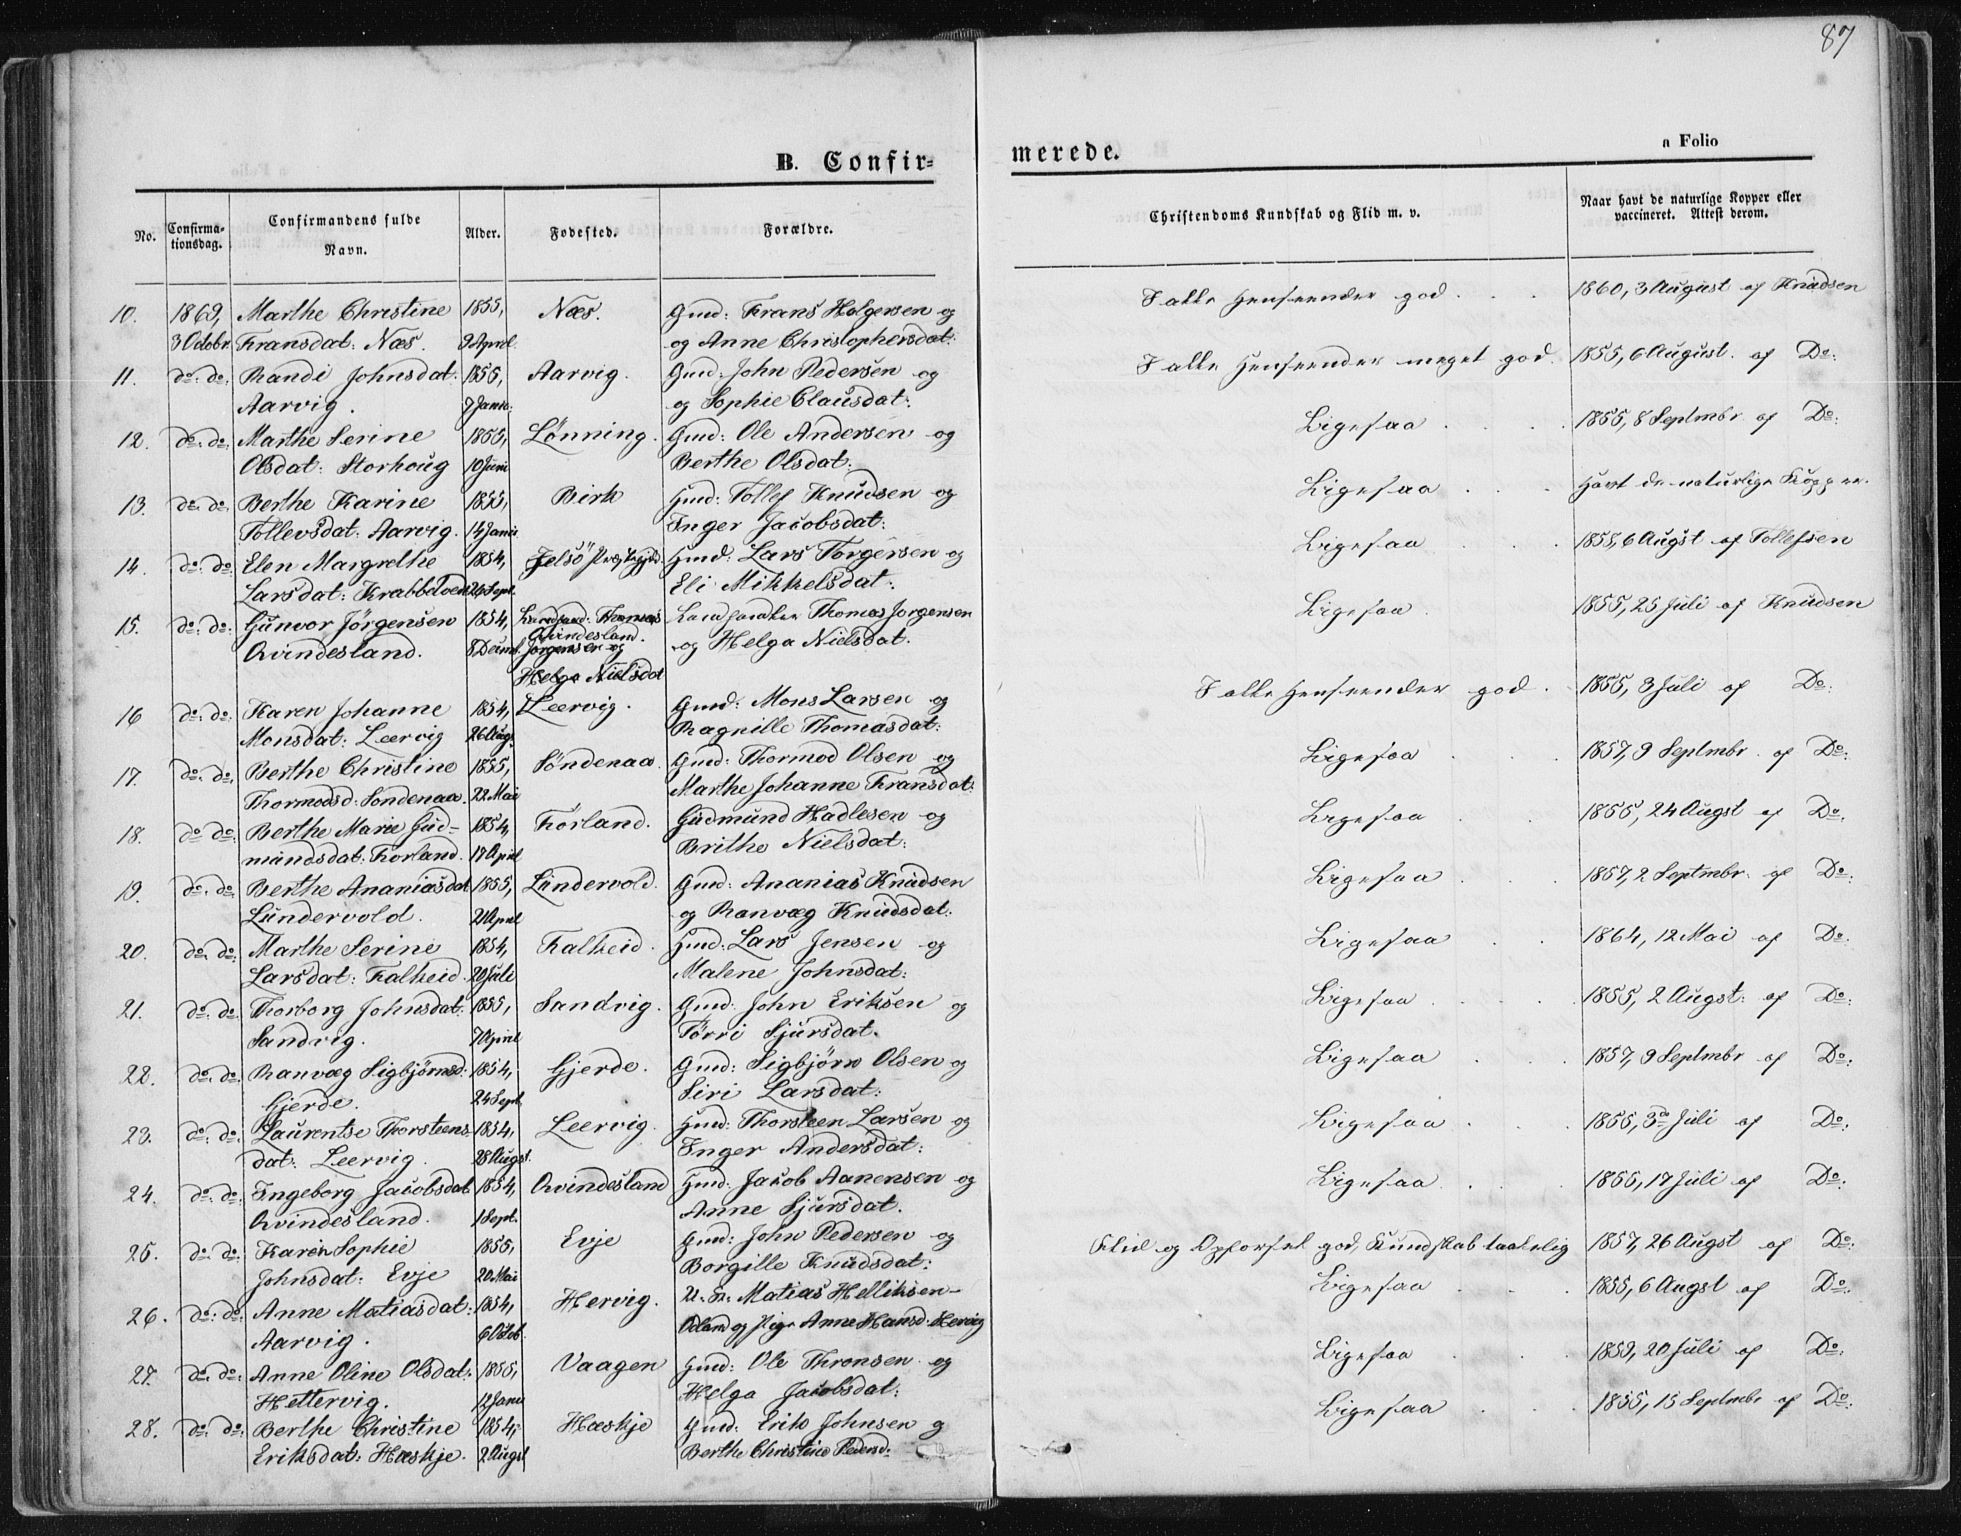 87
B. Confir-
merede.
a Folio
No.
Confirma-
tionsdag.
Confirmandens fulde
Navn.
Alder.
Fødested.
Forældre.
Christendoms Kundskab og Flid m. v.
Naar havt de naturlige Kopper eller
vaccineret. Attest derom.
10. 1869, Marthe Christine 1855, Næs. Gmd: Frans Holgersen og I alle Henseender god. 1860, 3 August af Knudsen
3 Octobr. Fransdat: Næs. 9 April. og Anne Christophersdat:
11. do: do: Randi Johnsdat: 1855, Aarvig. Gmd: John Pedersen og I alle Henseender meget god. 1855, 6 August. af Do:
Aarvig. 7 Janu: og Sophie Clausdat:
12. do: do: Marthe Serine 1855, Lønning. Gmd: Ole Andersen og Ligesaa 1855, 8 Septmbr. af Do:
Olsdat: Storhoug 10 Juni Berthe Olsdat:
13. do: do: Berthe Karine 1855, Birk Gmd: Tollef Knudsen og Ligesaa Havt de naturlige Kopper.
Tollevsdat: Aarvig. 14 Janu: Inger Jacobsdat:
14. do: do: Elen Margrethe 1854, Jelsö Gmd: Lars Torgersen og Ligesaa 1855, 6 Augst af Tollefsen
Larsdat: 26 Sept. Eli Mikkelsdat:
15. do: do: Gunvor Jörgensen 1854, Landhand: Thomas Landhandler Thomas Jorgensen Ligesaa 1855, 25 Juli af Knudsen
Qvindesland.
Qvindesland. 8 Decmb. Jorgensen og og Helga Nielsdat.
Helga Nielsdat
16 do: do: Karen Johanne 1854, Leervig. Gmd: Mons Larsen og I alle Henseender god. 1855, 3 Juli af Do:
Monsdat: Leervig 26 Aug: Ragnille Thomasdat:
17. do: do: Berthe Christine 1855, Söndenaa. Gmd: Thormod Olsen og Ligesaa 1857, 9 Septmbr. af Do:
Thormodsd: Sondenaa. 22 Mai Marthe Johanne Fransdat:
18. do: do: Berthe Marie Gud- 1854, Förland. Gudmund Hadlesen og Ligesaa 1855, 24 Augst af Do:
mundsdat: Forland. 19 April Brithe Nielsdat:
19. do: do: Berthe Ananiasdat 1855, Lundervold. Gmd: Ananias Knudsen Ligesaa 1857, 2 Septmbr. af Do:
Lundervold. 21 April og Ranvæg Knudsdat:
20. do: do: Marthe Serine 1854, Falkeid. Gmd: Lars Jensen og Ligesaa 1864, 12 Mai af Do:
Larsdat: Falkeid. 20 Juli Malene Johnsdat:
21. do: do: Thorborg Johnsdat: 1855, Sandvig. Gmd: John Eriksen og Ligesaa 1855, 2 Augst: af Do:
Sandvig. 7 April Törri Sjursdat.
22. do: do: Ranvæg Sigbjörnsd: 1854, Gjerde. Gmd: Sigbjörn Olsen og Ligesaa 1857, 9 Septmbr af Do:
Gjerde. 24 Sept. Siri Larsdat:
23. do: do: Laurentse Thorsteens 1854, Leervig. Gmd: Thorsteen Larsen og Ligesaa 1855, 3die Juli af Do:
dat: Leervig. 28 Augst. Inger Andersdat:
24. do: do: Ingeborg Jacobsdat 1854, Qvindesland Gmd: Jacob Aanensen og Ligesaa 1855, 17 Juli af Do:
Qvindesland. 1 Sept. Anne Sjursdat.
25. do: do: Karen Sophie 1855, Evje Gmd: John Pedersen og Flid og Opførsel god, Kundskab taalelig 1857, 26 Augst af Do:
Johnsdat: Evje 20 Mai Borgille Knudsdat:
26. do: do: Anne Matiasdat: 1854, Hervig. Matias Helliksen- Ligesaa 1855, 6 Augst af Do:
Aarvig. 6 Octob. Odland og Pige Anne Hansd: Hervig
27. do: do: Anne Oline Olsdat: 1855, Vaagen Gmd: Ole Thronsen og Ligesaa 1859, 20 Juli af Do:
Hettervig. 12 Janu Helga Jacobsdat:
28. do: do: Berthe Christine 1854, Hæskje Gmd: Erik Johnsen og Ligesaa 1855, 15 Septmbr af Do:
Eriksdat: Hæskje. 2 Augst Berthe Christine Pedersd: